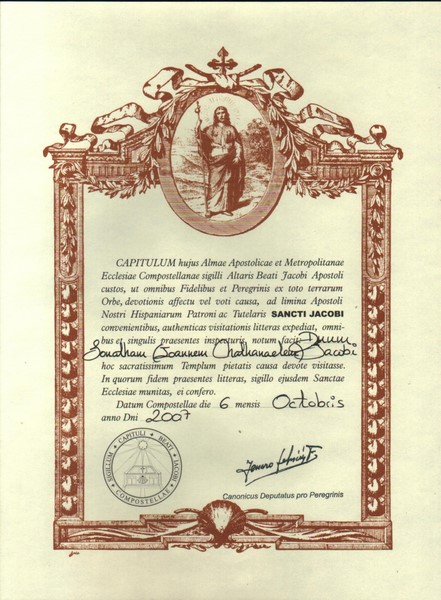 CAPITULUM hujus Almae Apostolicae et Metropolitanae
Ecclesiae Compostellanae sigilli Altaris Beati Jacobi Apostoli
custos, ut omnibus Fidelibus et Peregrinis ex toto terrarum
Orbe, devotionis affectu vel voti causa, ad limina Apostoli
Nostri Hispaniarum Patroni ac Tutelaris SANCTI JACOBI
convenientibus, authenticas visitationis litteras expediat, omni-
bus et singulis praesentes inspecturis, notum facit: Dnum
Jacobi
hoc sacratissimum Templum pietatis causa devote visitasse.
In quorum fidem praesentes litteras, sigillo ejusdem Sanctae
Ecclesiae munitas, ei confero.
Datum Compostellae die 6 mensis Octobris
anno Dni 2007
SIGILLUM CAPITULI BEATI JACOBI COMPOSTELLAE
Canonicus Deputatus pro Peregrinis